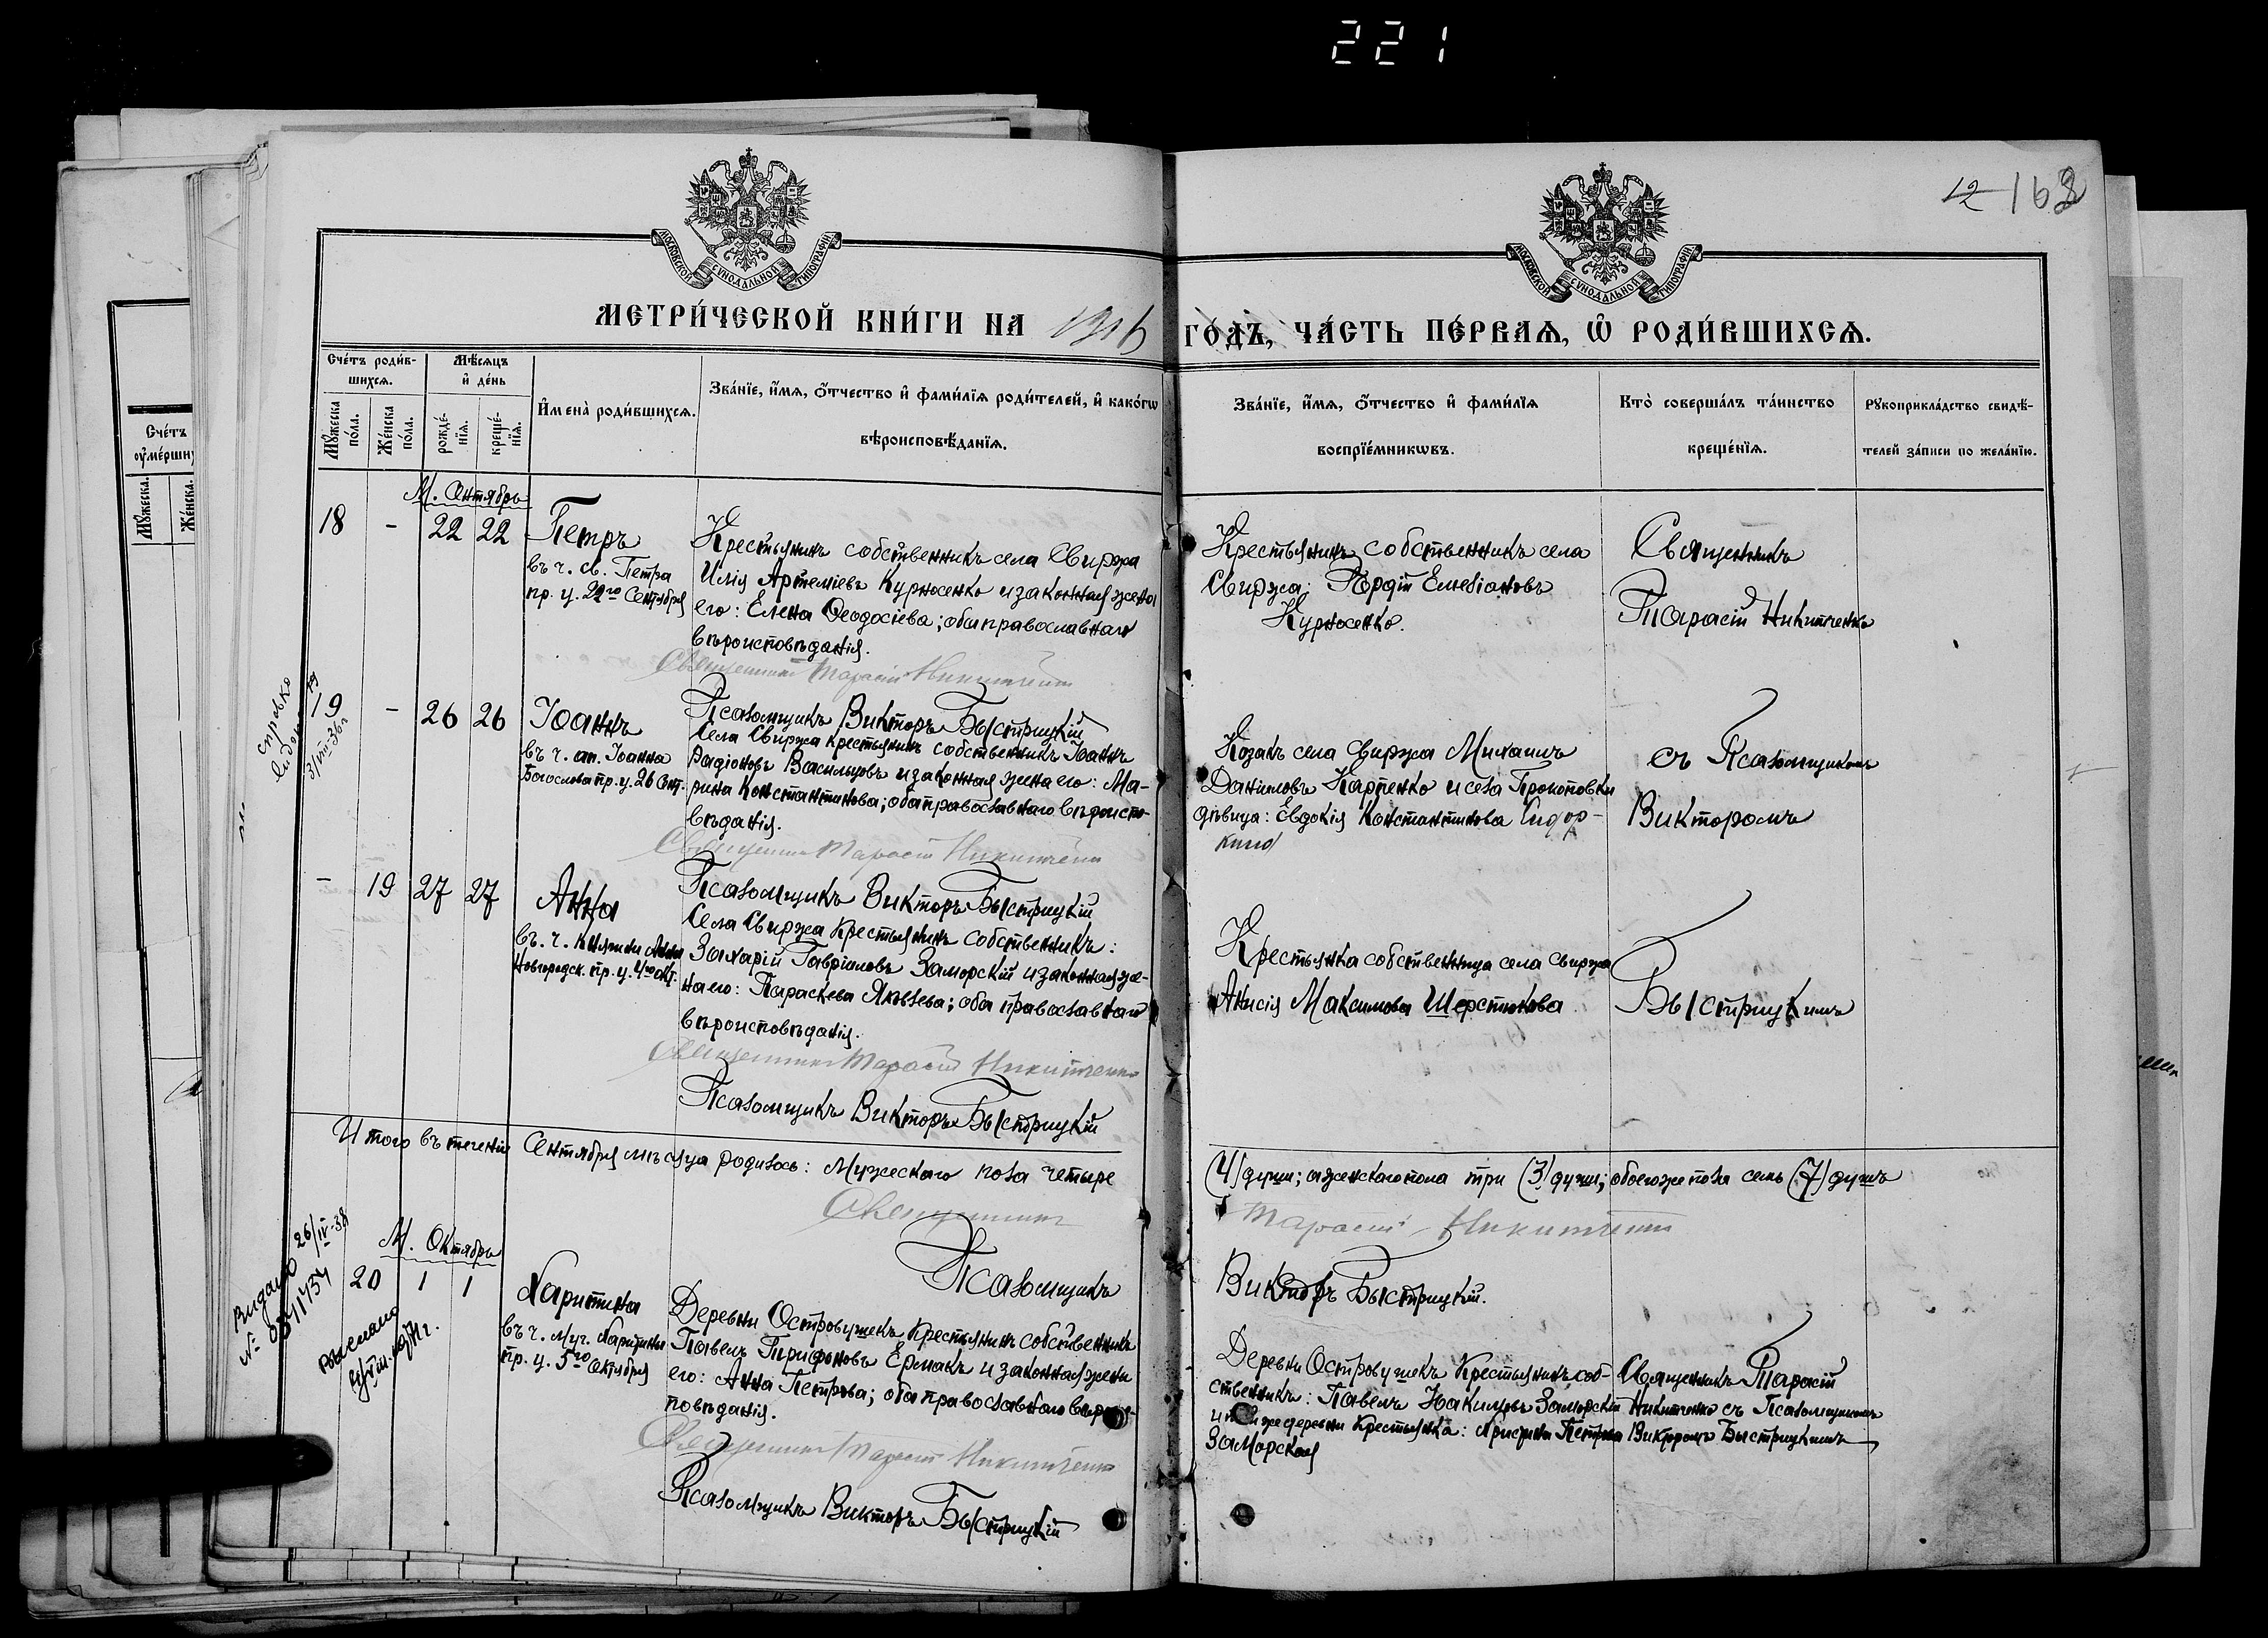 221
12 168
МОСКОВСКОЙ СѴНОДАЛЬНОЙ ТИПОГРАФІИ
МОСКОВСКОЙ СѴНОДАЛЬНОЙ ТИПОГРАФІИ
МЕТРИ́ЧЕСКОЙ КНИ́ГИ НА 1916
ГО́ДЪ, ЧА́СТЬ ПЕ́РВАѦ, Ѡ҆ РОДИ́ВШИХСѦ.
Сче́тъ роди́в-
шихсѧ.
Мѣ́сѧцъ
и҆ де́нь
Мꙋ́жеска
по́ла.
Же́нска
по́ла.
рожде́-
нїѧ.
креще́-
нїѧ.
И҆мена̀ роди́вшихсѧ.
Зва́нїе, и҆́мѧ, ѻ҆́тчество и҆ фами́лїѧ роди́телей, и҆ како́гѡ
вѣроисповѣ́данїѧ.
Зва́нїе, и҆́мѧ, ѻ҆́тчество и҆ фами́лїѧ
воспрїе́мникѡвъ.
Кто̀ соверша́лъ та́инство
креще́нїѧ.
Рꙋкоприкла́дство свидѣ́-
телей за́писи по жела́нїю.
Сче́тъ
Мꙋ́жеска.
Же́нска.
М. Сентябрь
18 - 22 22 Петръ
въ ч. св. Петра
пр. ц. 22го Сентября
Крестьянинъ собственникъ села Свиржа
Илія Артеміевъ Курносенко и законная жена
его: Елена Ѳеодосіева; оба православнаго
вѣроисповѣданія.
Священникъ Тарасій Никитченко
Псаломщикъ Викторъ Быстрицкій
Крестьянинъ собственникъ села
Свиржа: Гордій Емеліановъ
Курносенко.
Священникъ
Тарасій Никитченко
19 - 26 26 Іоаннъ
въ ч. ап. Іоанна
Богослова пр. ц. 26 Сент.
Села Свиржа крестьянинъ собственникъ Іоаннъ
Радіоновъ Васильцовъ и законная жена его: Ма-
рина Константинова; оба православнаго вѣроиспо-
вѣданія.
Священникъ Тарасій Никитченко
Псаломщикъ Викторъ Быстрицкій
Козакъ села Свиржа Михаилъ
Даніиловъ Карпенко и села Прокоповки
дѣвица: Евдокія Константинова
съ Псаломщикомъ
Викторомъ
- 19 27 27 Анна
въ. ч. княгини Анны
Новгородск. пр. ц. 4го окт.
Села Свиржа Крестьянинъ собственникъ:
Захарій Гавріиловъ Заморскій и законная же-
на его: Параскева Яковлева; оба православнаго
вѣроисповѣданія.
Священникъ Тарасій Никитченко
Псаломщикъ Викторъ Быстрицкій
Крестьянка собственница села Свиржа
Анисія Максимова Шерстюкова
Быстрицкимъ
Итого въ теченіи Сентября мѣсяца родилось: Мужескаго пола четыре
(4) души; а женскаго пола три (3) души; обоего же пола семь (7) душъ
Священникъ
Тарасій Никитченко
Псаломщикъ
Викторъ Быстрицкій.
26/IV-38
М. Октябрь
20 1 1 Харитина
въ ч. муч. Харитины
пр. ц. 5го октября
Деревни Островушекъ Крестьянинъ собственникъ
Павелъ Трифоновъ Ермакъ и законная жена
его: Анна Петрова; оба православнаго вѣроис-
повѣданія.
Священникъ Тарасій Никитченко
Псаломщикъ Викторъ Быстрицкій
Деревни Островушекъ Крестьянинъ соб-
ственникъ: Павелъ Іакимовъ Заморскій
и той же деревни Крестьянка: Христина Петрова
Заморская
Священникъ Тарасій
Никитченко съ Псаломщикомъ
Викторомъ Быстрицкимъ